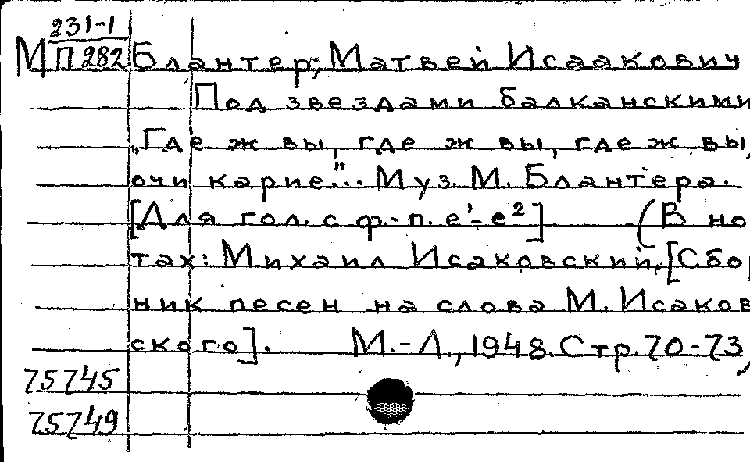 231-1
М П 282 Блантер, Матвей Исаакович
Под звездами балканскими
„Где ж вы, где ж вы, где ж вы,
очи карие"... Муз. М. Блантера.
[Для гол. с ф.-п. e¹-e²] (В но
тах: Михаил Исаковский, [Сбор
ник песен на слова М. Исаков
ского]. М.-Л., 1948. Стр. 70-73,
75745
75749